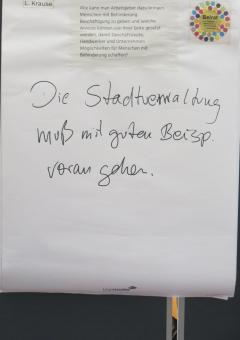 L. Krause
Wie kann man Arbeitgeber dazu bringen,
Menschen mit Behinderung
Beschäftigung zu geben und welche
Anreize können von Ihrer Seite gesetzt
werden, damit Geschäftsleute,
Handwerker und Unternehmen
Möglichkeiten für Menschen mit
Behinderung schaffen?
Beirat
Die Stadtverwaltung
muß mit guten Beisp.
voran gehen.